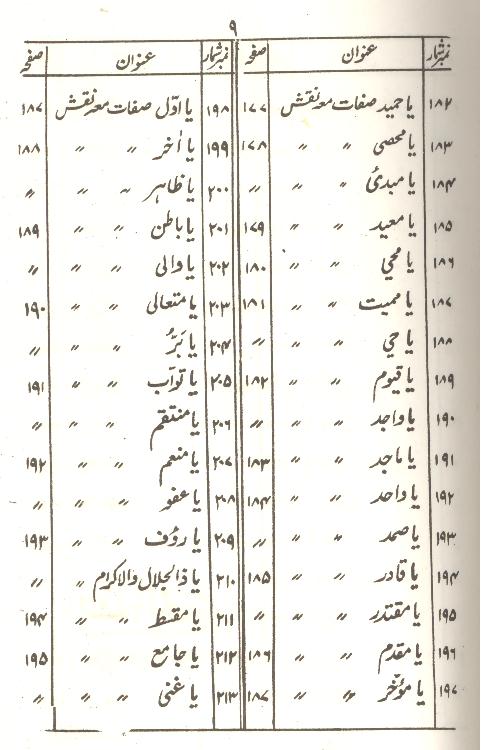 ۹
نمبر شمار عنوان صفحہ
۱۸۲ یا حمید صفات معہ نقش ۱۷۷
۱۸۳ یا محصی 〃 〃 ۱۷۸
۱۸۴ یا مبدئ 〃 〃 〃
۱۸۵ یا معید 〃 〃 ۱۷۹
۱۸۶ یا محی 〃 〃 ۱۸۰
۱۸۷ یا ممیت 〃 〃 ۱۸۱
۱۸۸ یا حی 〃 〃 〃
۱۸۹ یا قیوم 〃 〃 ۱۸۲
۱۹۰ یا واجد 〃 〃 〃
۱۹۱ یا ماجد 〃 〃 ۱۸۳
۱۹۲ یا واحد 〃 〃 ۱۸۴
۱۹۳ یا صمد 〃 〃 〃
۱۹۴ یا قادر 〃 〃 ۱۸۵
۱۹۵ یا مقتدر 〃 〃 〃
۱۹۶ یا مقدم 〃 〃 ۱۸۶
۱۹۷ یا مؤخر 〃 〃 ۱۸۷
نمبر شمار عنوان صفحہ
۱۹۸ یا اوّل صفات معہ نقش ۱۸۷
۱۹۹ یا اٰخر 〃 〃 ۱۸۸
۲۰۰ یا ظاہر 〃 〃 〃
۲۰۱ یا باطن 〃 〃 ۱۸۹
۲۰۲ یا والی 〃 〃 〃
۲۰۳ یا متعالی 〃 〃 ۱۹۰
۲۰۴ یا بَرُّ 〃 〃 〃
۲۰۵ یا توآب 〃 〃 ۱۹۱
۲۰۶ یا منتقم 〃 〃 〃
۲۰۷ یا منعم 〃 〃 ۱۹۲
۲۰۸ یا عفو 〃 〃 〃
۲۰۹ یا رؤف 〃 〃 ۱۹۳
۲۱۰ یا ذالجلال والاکرام 〃 〃
۲۱۱ یا مقسط 〃 〃 ۱۹۴
۲۱۲ یا جامع 〃 〃 ۱۹۵
۲۱۳ یا غنی 〃 〃 〃